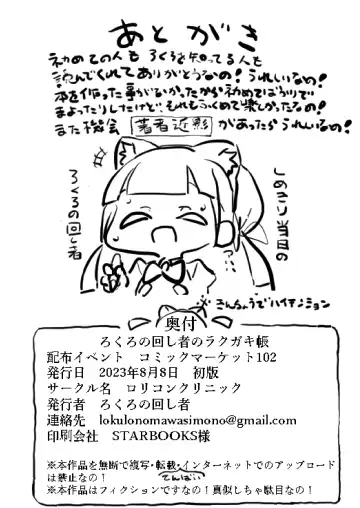 あとがき
初めての人も ろくろを知ってる人も
読んでくれてありがとうなの！うれしいなの！
本を作った事がなかったから初めてばかりで
まよったりしたけど、それもふくめて楽しかったなの！
また機会があったらうれしいなの！
著者近影
しめきり当日の
ろくろの回し者
※さんちょうでハイテンション
奥付
ろくろの回し者のラクガキ帳
配布イベント　コミックマーケット102
発行日　2023年8月8日　初版
サークル名　ロリコンクリニック
発行者　ろくろの回し者
連絡先　lokulonomawasimono@gmail.com
印刷会社　STARBOOKS様
※本作品を無断で複写・転載・インターネットでのアップロード
てんばい
は禁止なの！
※本作品はフィクションですなの！真似しちゃ駄目なの！